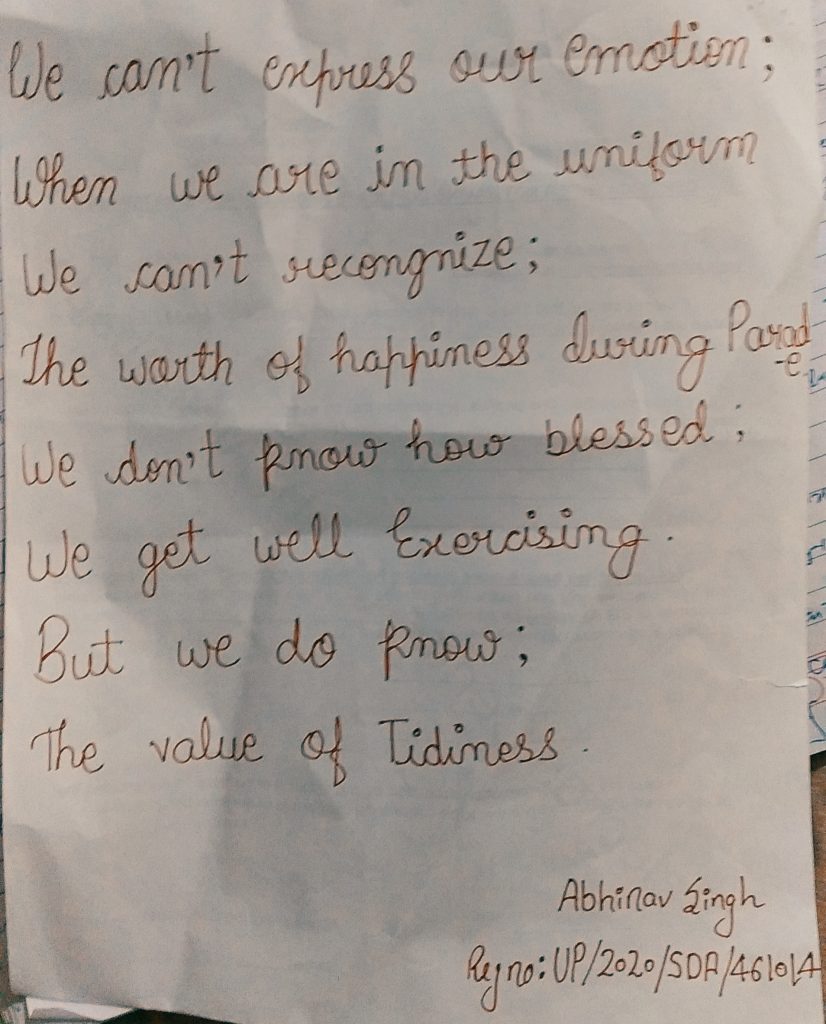 We can't express our emotion;
When we are in the uniform
We can't recongnize;
The worth of happiness during Parad
-e
We don't know how blessed;
We get well Exercising.
But we do know;
The value of Tidiness.
Abhinav Singh
Reg no: UP/2020/SDA/461014